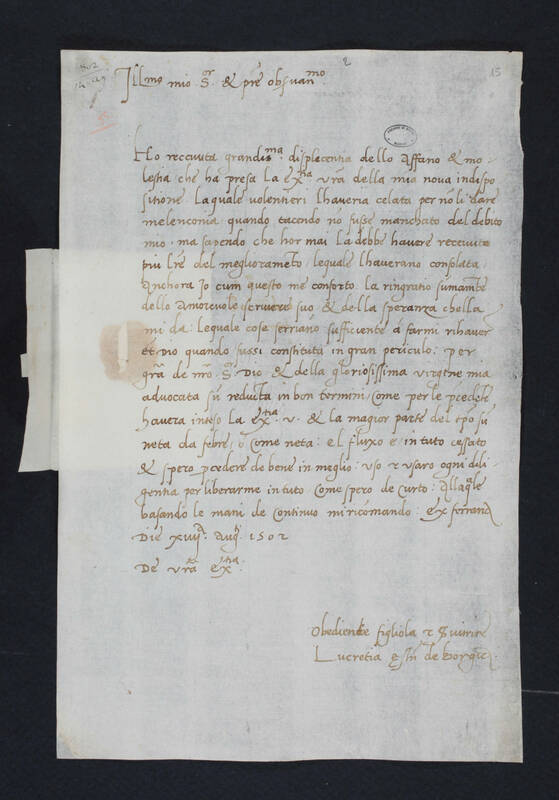 1502
15
2
Ill.mo mio S.r & pre obsvan.mo
Ho receuuta grandis.ma displecentia dello Affano & mo-
lestia che ha presa La ex.tia vra della mia nova indispo
sitione Laquale volentieri Lhaveria celata per no li dare
melenconia quando tacendo no fusse manchato del debito
mio . ma sapendo che hor mai La debbe havere receuuto
piu Lre del meglioramento Lequale Lhaverano consolata
Anchora Io cum questo me conforto La ringratio sumamte
dello Amorevole scrivere suo & della speranza chella
mi da : Lequale cose serriano sufficiente a farmi rihaver
et Dio quando fussi constituta in gran periculo . per
gra de nro S.r Dio & della gloriosissima virgene mia
advocata su reducta in bon termini / come per le pcedete
havera inteso La ex.tia v. & La magior parte del tpo su
neta da febre / o come neta : el fluxo e in tuto cessato
& spero pcedere de bene in meglio : uso & usaro ogni dili-
gentia per liberarme in tuto come spero de curto : Alla qle
basando le mani de continuo mi ricomando : ex ferrara
Die xviiij Aug.i 1502
De vra ex.tia
Obediente figliola &
Lucretia de borgia